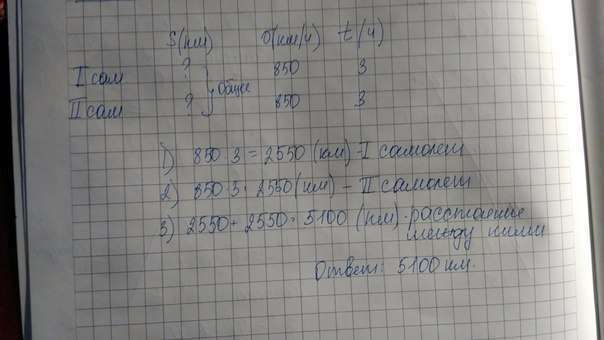 S(км) υ(км/ч) t(ч)
I сам ? 850 3
II сам ? } общее 850 3
1) 850 · 3 = 2550 (км) - I самолет
2) 850 · 3 = 2550 (км) - II самолет
3) 2550 + 2550 = 5100 (км) - расстояние
между ними
Ответ: 5100 км.